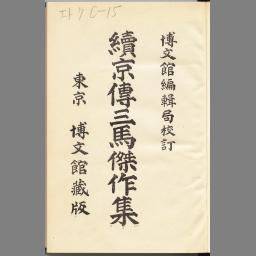 エトク C-15
博文館編輯局校訂
續京傳三馬傑作集
東京 博文館藏版